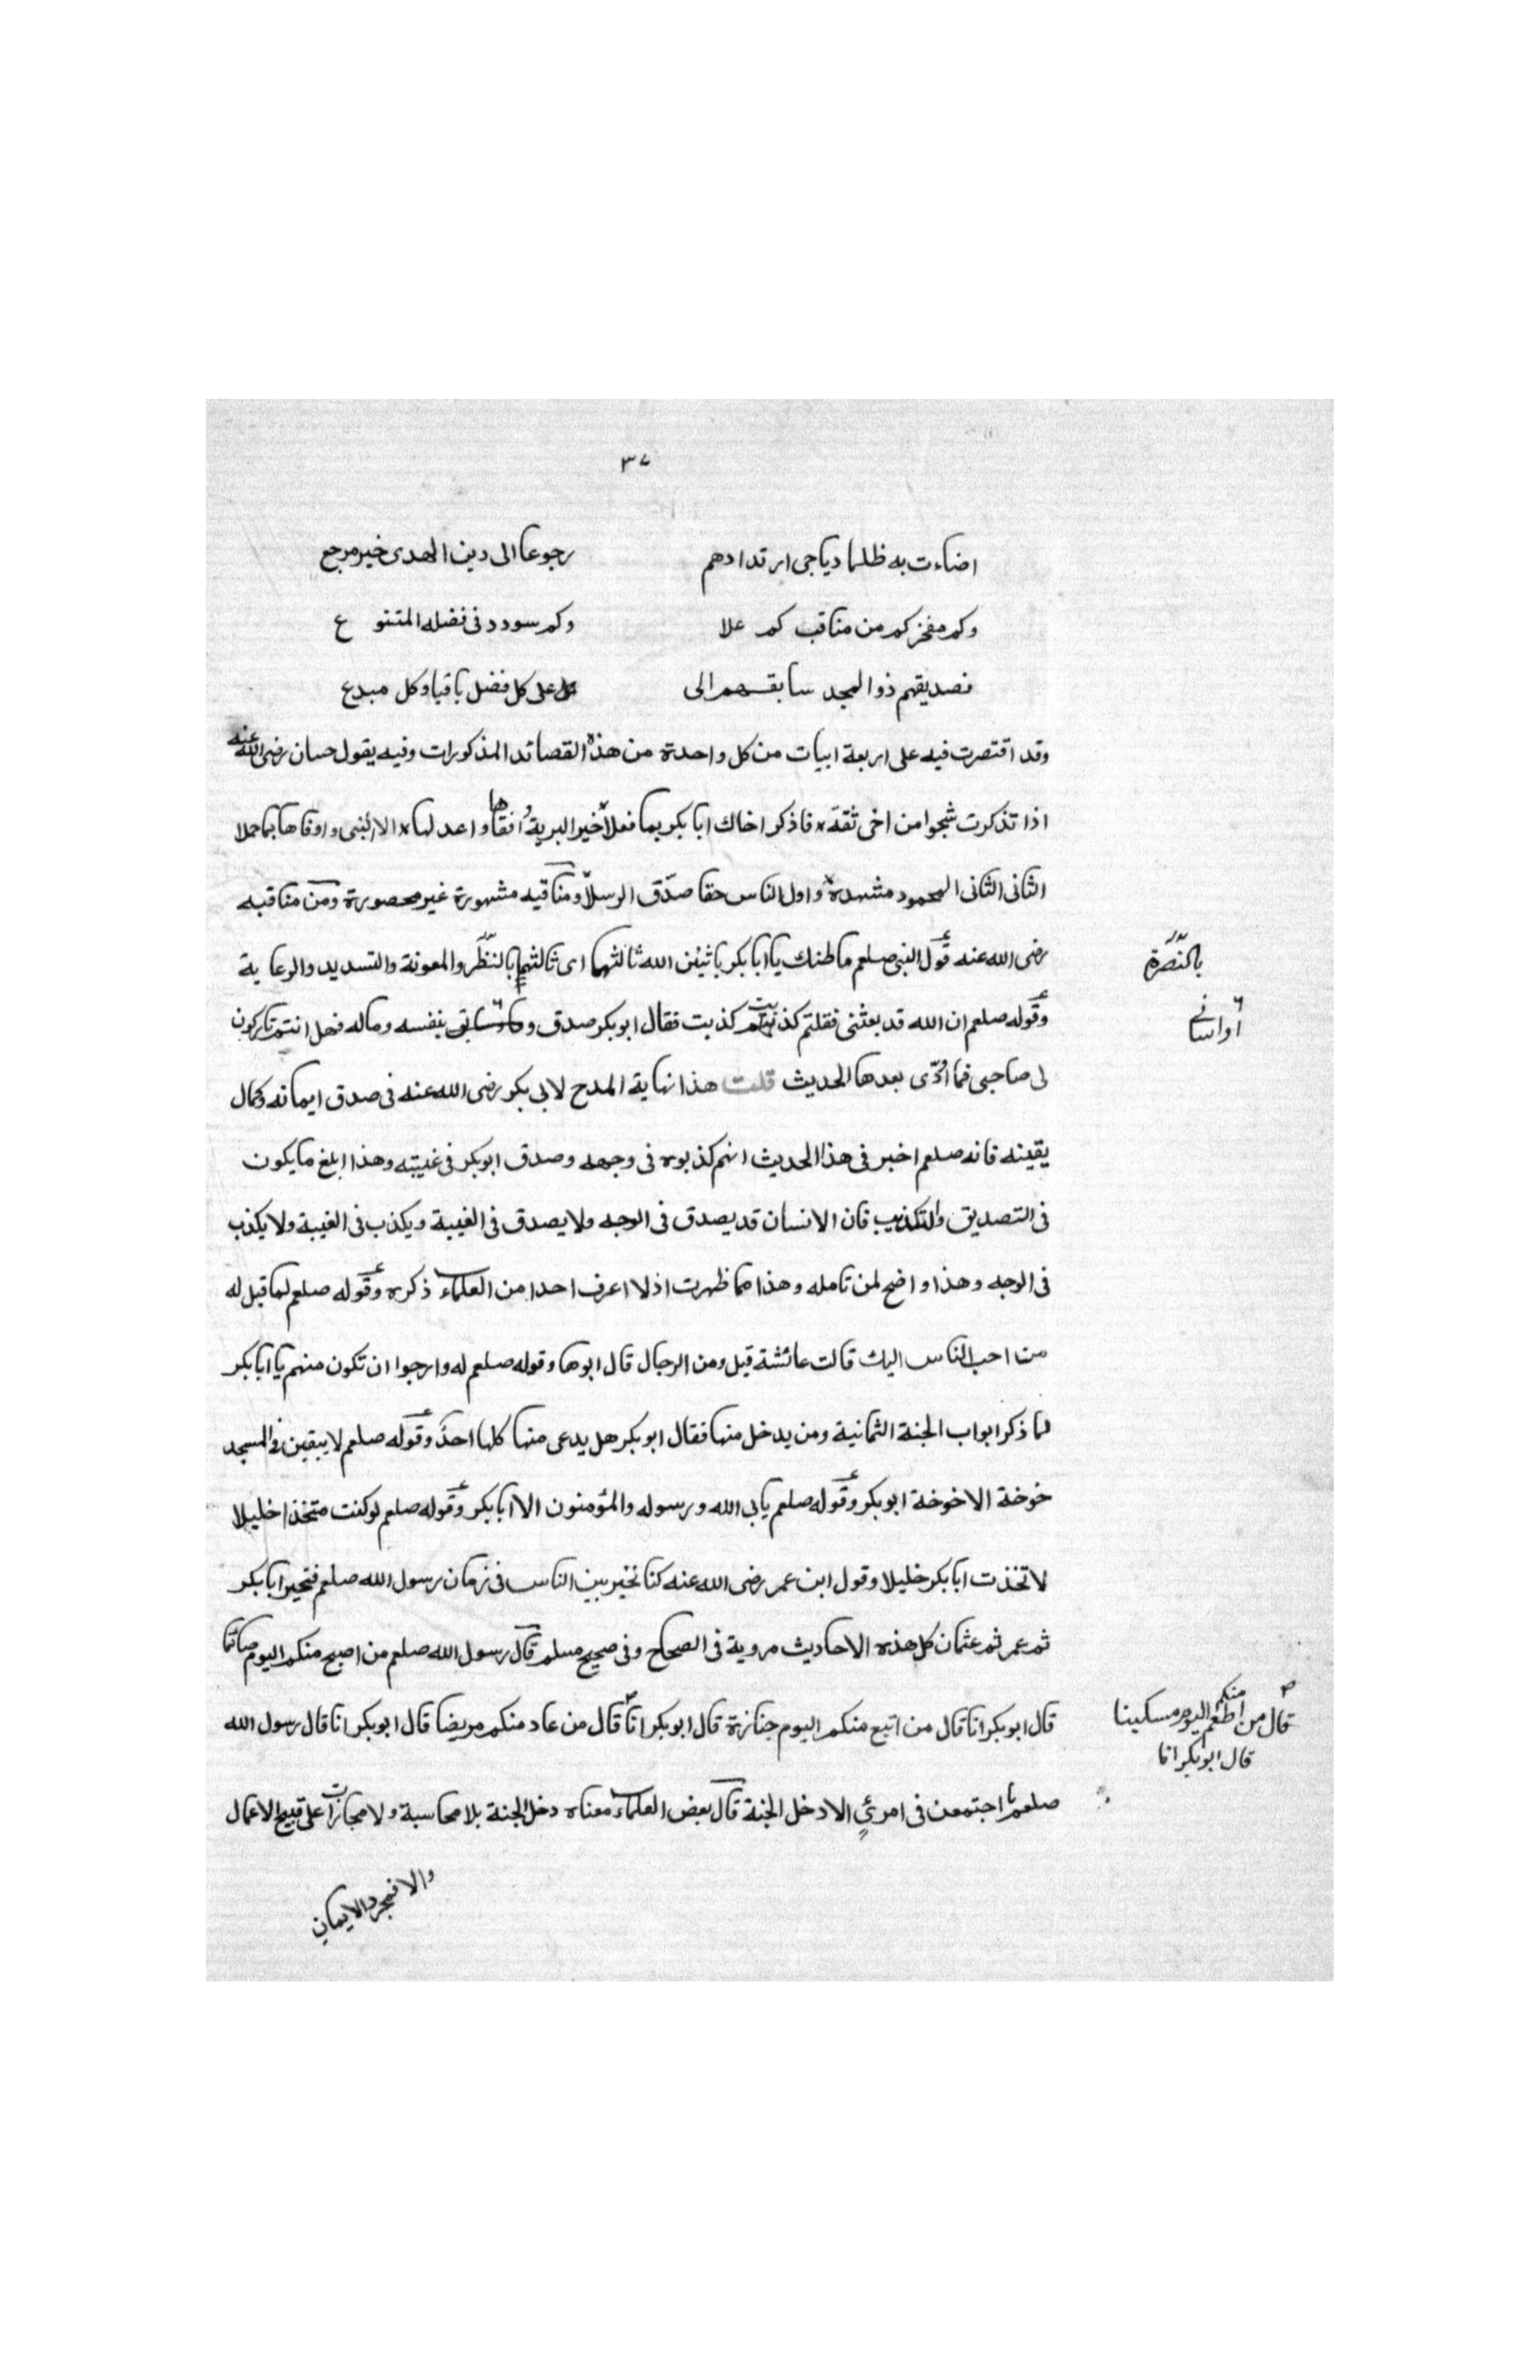 ٣٧
اضاءت به ظلما دياجى ارتدادهم رجوعا الى دين الهدى خير مرجع
وكم مفخر كم من مناقب كم علا وكم سودد فى فضله المتنوع
فصديقهم ذو المجد سابقهم الى على كل فضل باقيا وكل مبدع
وقد اقتصرت فيه على اربعة ابيات من كل واحدة من هذه القصائد المذكورات وفيه يقول حسان رضى الله عنه
اذا تذكرت شجوا من اخى ثقة فاذكر اخاك ابا بكر بما فعلا خير البرية اتقاها واعدلها الا النبى واوفاها بما حملا
الثانى الثانى المحمود مشهده واول الناس حقا صدّق الرسلا ومناقبه مشهورة غير محصورة ومن مناقبه
رضى الله عنه قول النبى صلعم ما ظنك يا ابا بكر باثنين الله ثالثهما اى ثالثهما بالنظر والمعونة والتسديد والرعاية
بالنّصرة
وقوله صلعم ان الله قد بعثنى فقلتم كذبت فقال ابو بكر صدق و بنفسه وماله فهل انتم تاركون
اواسانى
لى صاحبى فما اوذى بعدها الحديث قلت هذا نهاية المدح لابى بكر رضى الله عنه فى صدق ايمانه وكمال
يقينه فانه صلعم اخبر فى هذا الحديث انهم كذبوه فى وجهه وصدق ابو بكر فى غيبته وهذا ابلغ ما يكون
فى التصديق والتكذيب فان الانسان قد يصدق فى الوجه ولا يصدق فى الغيبة ويكذب فى الغيبة ولا يكذب
فى الوجه وهذا واضح لمن تامله وهذا مما ظهرت اذ لا اعرف احدا من العلماء ذكره وقوله صلعم لما قيل له
من احب الناس اليك قالت عائشة قيل ومن الرجال قال ابوها وقوله صلعم له وارجوا ان تكون منهم يا ابا بكر
لما ذكر ابواب الجنة الثمانية ومن يدخل منها فقال ابو بكر هل يدعى منها كلها احد وقوله صلعم لا يبقين فى المسجد
خوخة الا خوخة ابو بكر وقوله صلعم يابى الله ورسوله والمؤمنون الا ابا بكر وقوله صلعم لو كنت متخذا خليلا
لاتخذت ابا بكر خليلا وقول ابن عمر رضى الله عنه كنا نخير بين الناس فى زمان رسول الله صلعم فنخير ابا بكر
ثم عمر ثم عثمان كل هذه الاحاديث مروية فى الصحاح وفى صحيح مسلم قال رسول الله صلعم من اصبح منكم اليوم صائما
قال ابو بكر انا قال من اتبع منكم اليوم جنازة قال ابو بكر انا قال من عاد منكم مريضا قال ابو بكر انا قال رسول الله
قال من اطعم منكم اليوم مسكينا
قال ابو بكر انا
صلعم ما اجتمعن فى امرئ الا دخل الجنة قال بعض العلماء معناه دخل الجنة بلا محاسبة ولا مجازات على قبيح الاعمال
والا فمجرد الايمان